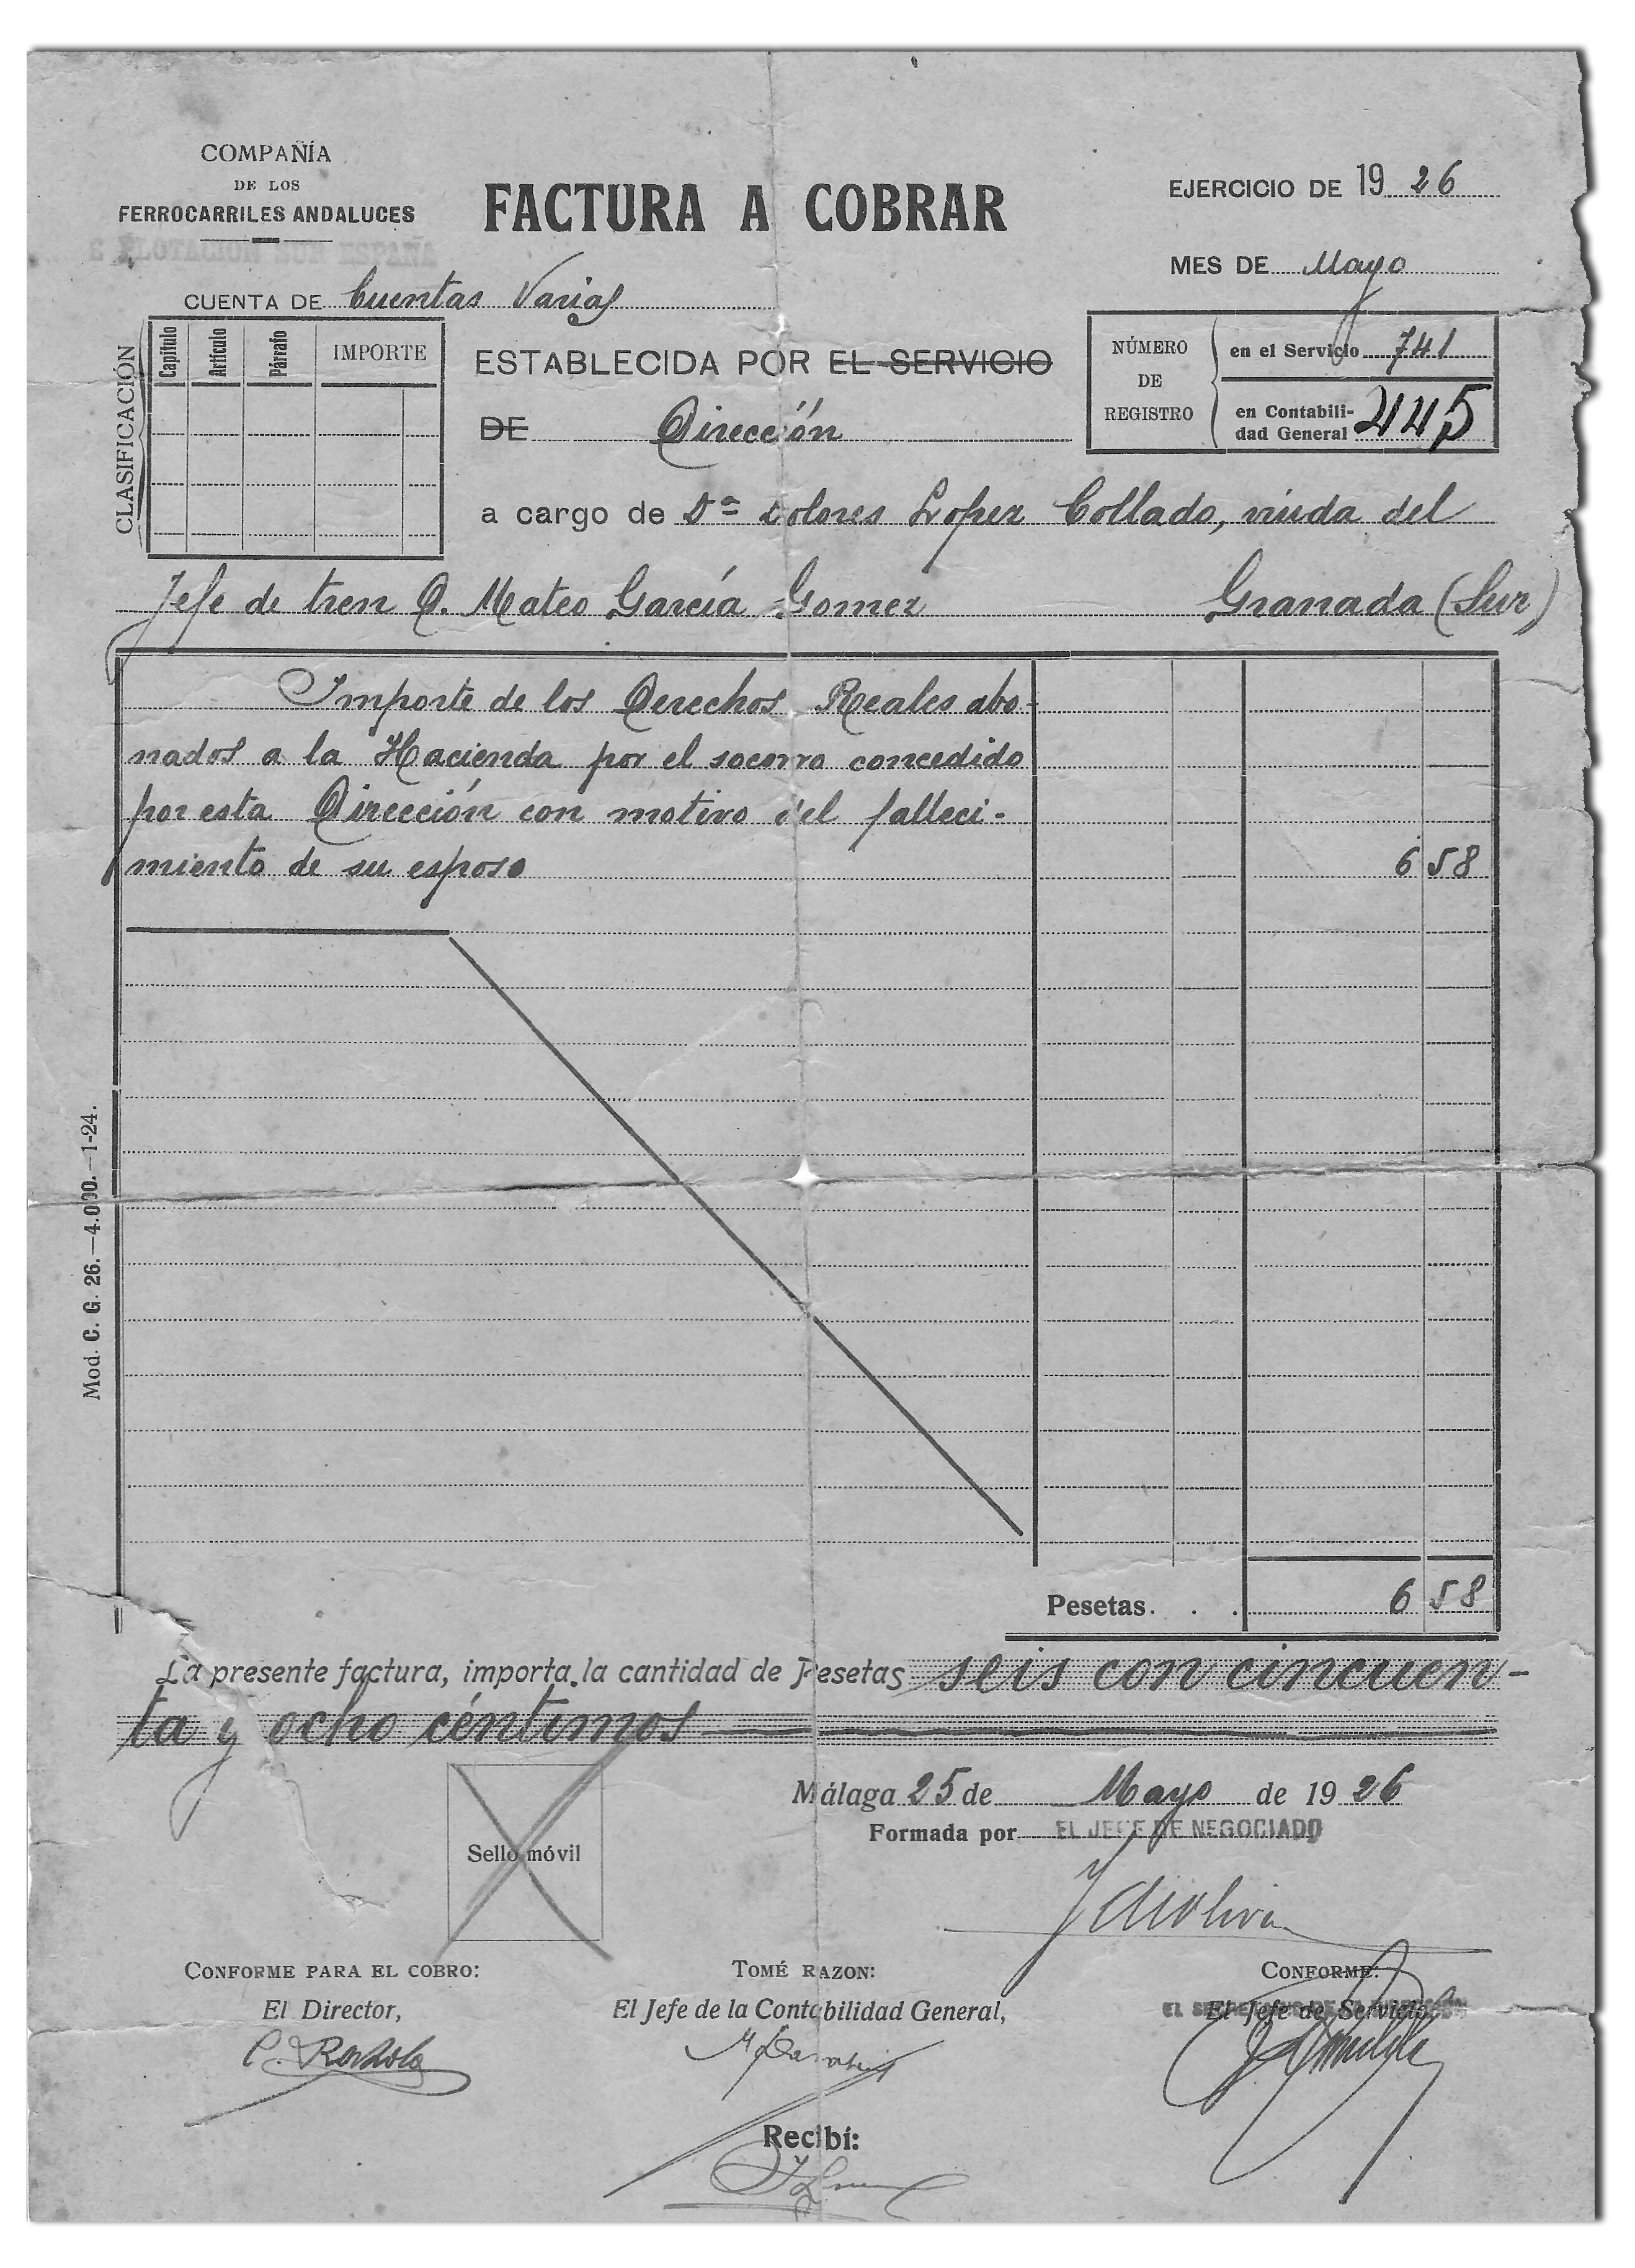 COMPAÑÍA
DE LOS
FERROCARRILES ANDALUCES
FACTURA A COBRAR
EJERCICIO DE 1926
MES DE Mayo
CUENTA DE Cuentas Varias
CLASIFICACIÓN
Capítulo Artículo Párrafo IMPORTE
ESTABLECIDA POR EL SERVICIO
DE Dirección
NÚMERO DE REGISTRO
en el Servicio 741
en Contabili-
dad General 445
a cargo de Dª Dolores Lopez Collado, viuda del
Jefe de tren D. Mateo García Gomez Granada (Sur)
Importe de los Derechos Reales abo-
nados a la Hacienda por el socorro concedido
por esta Dirección con motivo del falleci-
miento de su esposo 6 58
Mod. C. G. 26.—4.000.—1-24.
Pesetas. . . 6 58
La presente factura, importa la cantidad de Pesetas seis con cincuen-
ta y ocho céntimos
Málaga 25 de Mayo de 1926
Formada por EL JEFE DE NEGOCIADO
Sello móvil
CONFORME PARA EL COBRO:
El Director,
TOMÉ RAZON:
El Jefe de la Contabilidad General,
CONFORME:
El Jefe de Servicio
Recibí: